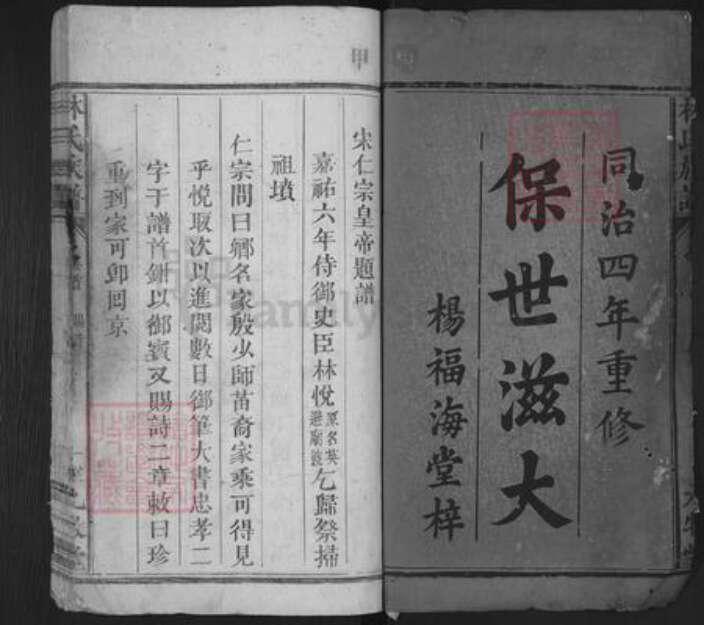 同治四年重修
保世滋大
楊福海堂梓
甲
宋仁宗皇帝題譜
嘉祐六年侍御史臣林悅原名英避廟諱乞歸祭掃
祖墳
仁宗問曰卿名家殷少師苗裔家乘可得見
乎悅取次以進閱數日御筆大書忠孝二
字于譜首鈐以御寳又賜詩二章敕曰珍
重到家可卽回京
林氏族譜